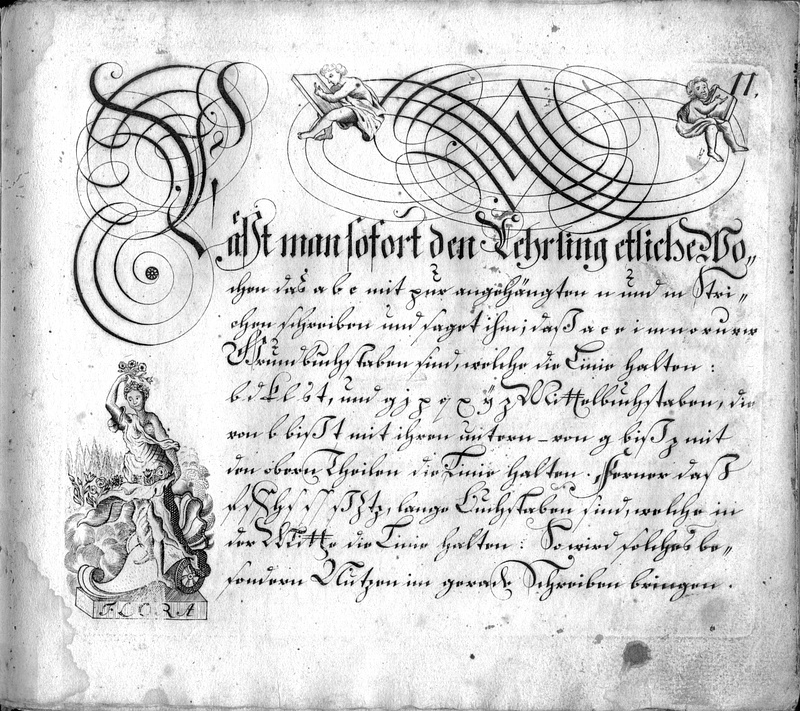 11.
Läßt man sofort den Lehrling etliche Wo„
chen das a b c mit zur angehängten n und m Stri„
chen schreiben und saget ihm; daß a c e i m n o r u v w
Grundbuchstaben sind, welche die Linie halten:
b d k l s t, und g j p q x ÿ z Mittelbuchstaben, die
von b biß t mit ihren untern – von g biß z mit
den obern Theilen die Linie halten. Ferner daß
ß tz, lange Buchstaben sind, welche in
der Mitte die Linie halten: So wird solches be„
sondern Nutzen im gerade Schreiben bringen.
FLORA